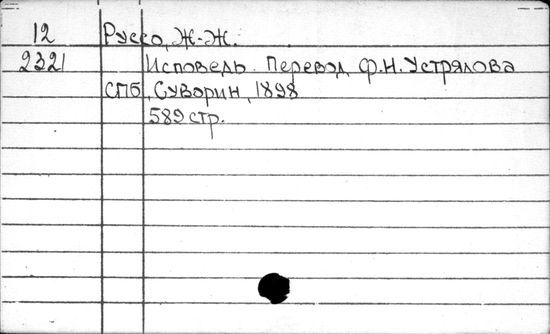 12 Руссо, Ж-Ж.
2321 Исповедь. Перевод Ф.Н. Устрялова
СПб, Суворин, 1898
589 стр.